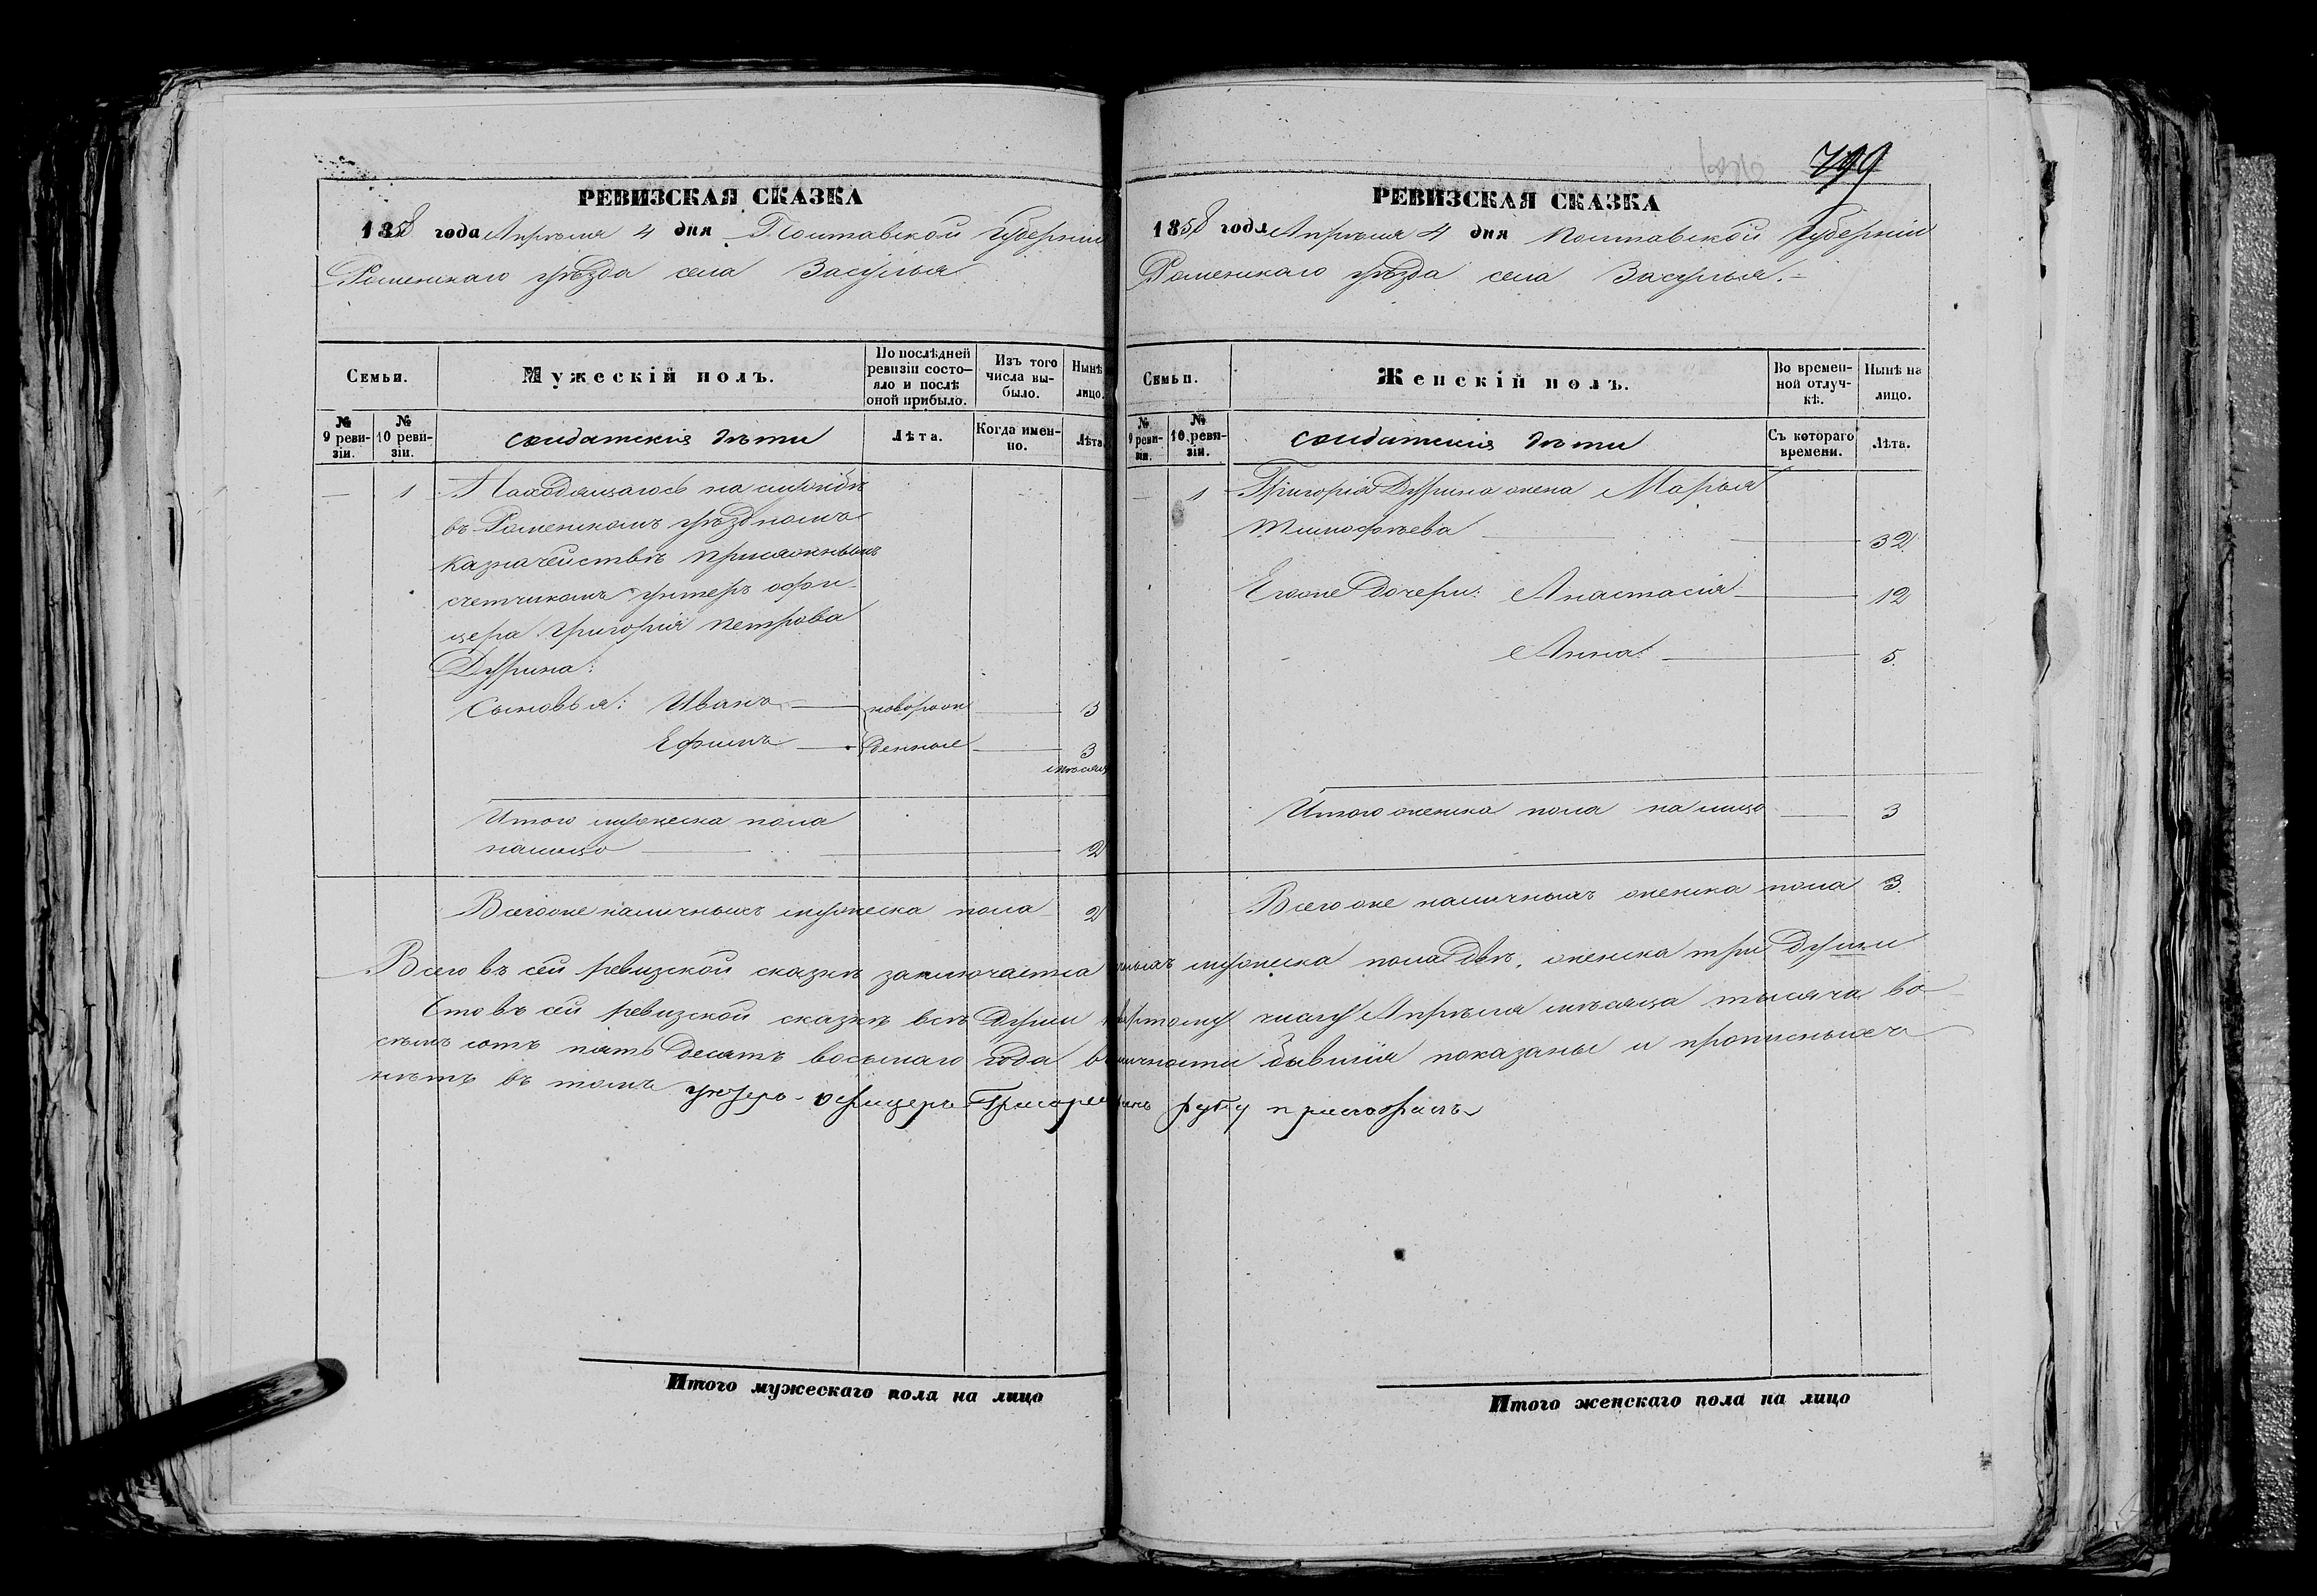 РЕВИЗСКАЯ СКАЗКА
1858 года Апрѣля 4 дня Полтавской Губерніи
Роменскаго уѣзда села Засулья
Семьи.
Мужескій полъ.
По послѣдней ревизіи состояло и послѣ оной прибыло.
Изъ того числа выбыло.
Нынѣ лицо.
№ 9 ревизіи.
№ 10 ревизіи.
солдатскія дѣти
Лѣта.
Когда именно.
Лѣта
— 1 Находящагось на службѣ
въ Роменскомъ уѣздномъ
казначействѣ присяжнымъ
счетчикомъ унтеръ офи-
цера Григорія Петрова
Сыновья: Иванъ — новорож — 3
Ефимъ — денные — 3
мѣсяц
Итого мужеска пола
налицо — 2
Всего же наличныхъ мужеска пола 2
799
РЕВИЗСКАЯ СКАЗКА
1858 года Апрѣля 4 дня Полтавской Губерніи
Роменскаго уѣзда села Засулья.-
Семьи.
Женскій полъ.
Во временной отлучкѣ.
Нынѣ на лицо.
№ 9 ревизіи.
№ 10 ревизіи.
солдатскія дѣти
Съ котораго времени.
Лѣта.
— 1 Григорія жена Марья
Тимофѣева — 32
Егоже дочери: Анастасія — 12
Анна: — 5.
Итого женска пола на лицо — 3
Всего же наличныхъ женска пола 3.
Всего въ сей ревизской сказкѣ заключается чныхъ мужеска пола двѣ, женска три души
Что въ сей ревизской сказкѣ всѣ души вертому числу Апрѣля мѣсяца тысяча во-
семь сотъ пятьдесятъ восьмаго года въ личности бывшія показаны и прописныхъ
нѣтъ въ томъ унтеръ-офицеръ Григорій руку приложилъ
Итого мужескаго пола на лицо
Итого женскаго пола на лицо